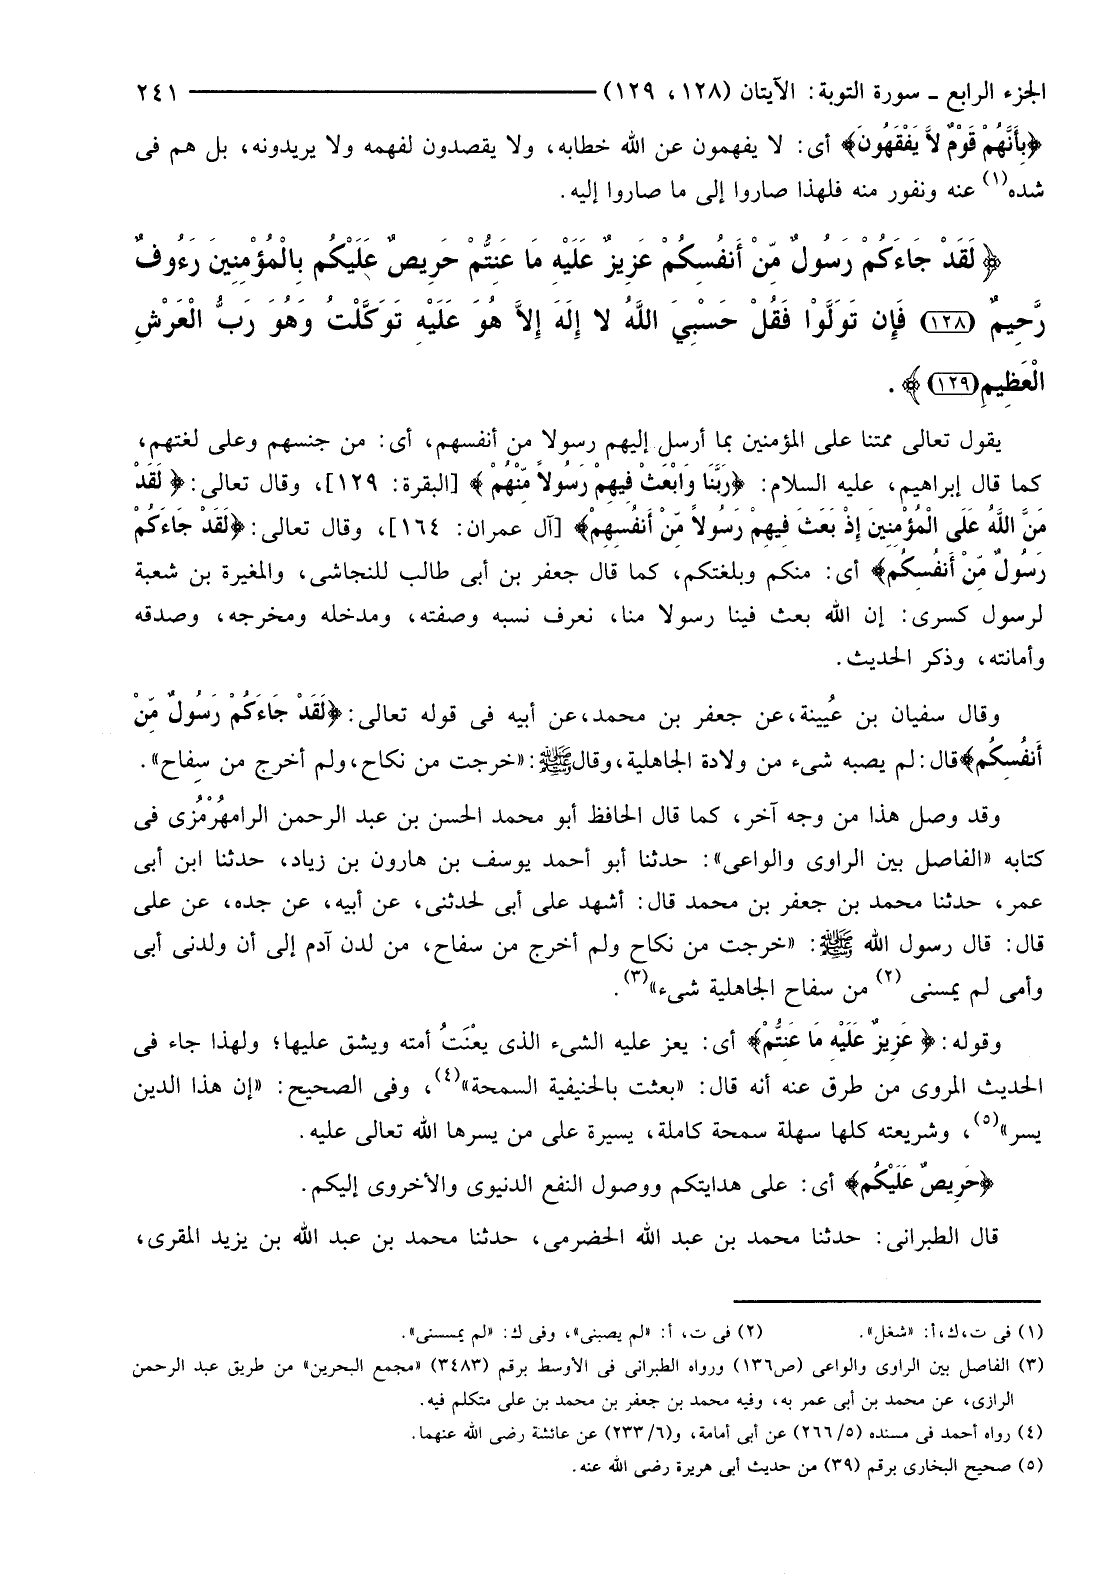 الجزء الرابع ـ سورة التوبة: الآيتان (١٢٨، ١٢٩) ٢٤١
﴿بِأَنَّهُمْ قَوْمٌ لاَّ يَفْقَهُونَ﴾ أى: لا يفهمون عن الله خطابه، ولا يقصدون لفهمه ولا يريدونه، بل هم فى
شده(١) عنه ونفور منه فلهذا صاروا إلى ما صاروا إليه.
﴿لَقَدْ جَاءَكُمْ رَسُولٌ مِّنْ أَنفُسِكُمْ عَزِيزٌ عَلَيْهِ مَا عَنِتُّمْ حَرِيصٌ عَلَيْكُم بِالْمُؤْمِنِينَ رَءُوفٌ
رَّحِيمٌ (١٢٨) فَإِن تَوَلَّوْا فَقُلْ حَسْبِيَ اللَّهُ لا إِلَهَ إِلاَّ هُوَ عَلَيْهِ تَوَكَّلْتُ وَهُوَ رَبُّ الْعَرْشِ
الْعَظِيمِ(١٢٩)﴾ .
يقول تعالى ممتنا على المؤمنين بما أرسل إليهم رسولا من أنفسهم، أى: من جنسهم وعلى لغتهم،
كما قال إبراهيم، عليه السلام: ﴿رَبَّنَا وَابْعَثْ فِيهِمْ رَسُولاً مِّنْهُمْ﴾ [البقرة: ١٢٩]، وقال تعالى: ﴿لَقَدْ
مَنَّ اللَّهُ عَلَى الْمُؤْمِنِينَ إِذْ بَعَثَ فِيهِمْ رَسُولاً مِّنْ أَنفُسِهِمْ﴾ [آل عمران: ١٦٤]، وقال تعالى: ﴿لَقَدْ جَاءَكُمْ
رَسُولٌ مِّنْ أَنفُسِكُم﴾ أى: منكم وبلغتكم، كما قال جعفر بن أبى طالب للنجاشى، والمغيرة بن شعبة
لرسول كسرى: إن الله بعث فينا رسولا منا، نعرف نسبه وصفته، ومدخله ومخرجه، وصدقه
وأمانته، وذكر الحديث.
وقال سفيان بن عُيينة،عن جعفر بن محمد،عن أبيه فى قوله تعالى: ﴿لَقَدْ جَاءَكُمْ رَسُولٌ مِّنْ
أَنفُسِكُم﴾قال:لم يصبه شىء من ولادة الجاهلية،وقالﷺ:«خرجت من نكاح،ولم أخرج من سِفاح».
وقد وصل هذا من وجه آخر، كما قال الحافظ أبو محمد الحسن بن عبد الرحمن الرامهُرْمُزى فى
كتابه «الفاصل بين الراوى والواعى»: حدثنا أبو أحمد يوسف بن هارون بن زياد، حدثنا ابن أبى
عمر، حدثنا محمد بن جعفر بن محمد قال: أشهد على أبى لحدثنى، عن أبيه، عن جده، عن على
قال: قال رسول الله ﷺ: «خرجت من نكاح ولم أخرج من سفاح، من لدن آدم إلى أن ولدنى أبى
وأمى لم يمسنى (٢) من سفاح الجاهلية شىء»(٣).
وقوله: ﴿عَزِيزٌ عَلَيْهِ مَا عَنِتُّمْ﴾ أى: يعز عليه الشىء الذى يعْنَتُ أمته ويشق عليها؛ ولهذا جاء فى
الحديث المروى من طرق عنه أنه قال: «بعثت بالحنيفية السمحة»(٤)، وفى الصحيح: «إن هذا الدين
يسر»(٥)، وشريعته كلها سهلة سمحة كاملة، يسيرة على من يسرها الله تعالى عليه.
﴿حَرِيصٌ عَلَيْكُم﴾ أى: على هدايتكم ووصول النفع الدنيوى والأخروى إليكم.
قال الطبرانى: حدثنا محمد بن عبد الله الحضرمى، حدثنا محمد بن عبد الله بن يزيد المقرى،
(١) فى ت،ك،أ: «شغل». (٢) فى ت، أ: «لم يصبنى»، وفى ك: «لم يمسسنى».
(٣) الفاصل بين الراوى والواعى (ص١٣٦) ورواه الطبرانى فى الأوسط برقم (٣٤٨٣) «مجمع البحرين» من طريق عبد الرحمن
الرازى، عن محمد بن أبى عمر به، وفيه محمد بن جعفر بن محمد بن على متكلم فيه.
(٤) رواه أحمد فى مسنده (٢٦٦/٥) عن أبى أمامة، و(٢٣٣/٦) عن عائشة رضى الله عنهما.
(٥) صحيح البخارى برقم (٣٩) من حديث أبى هريرة رضى الله عنه.